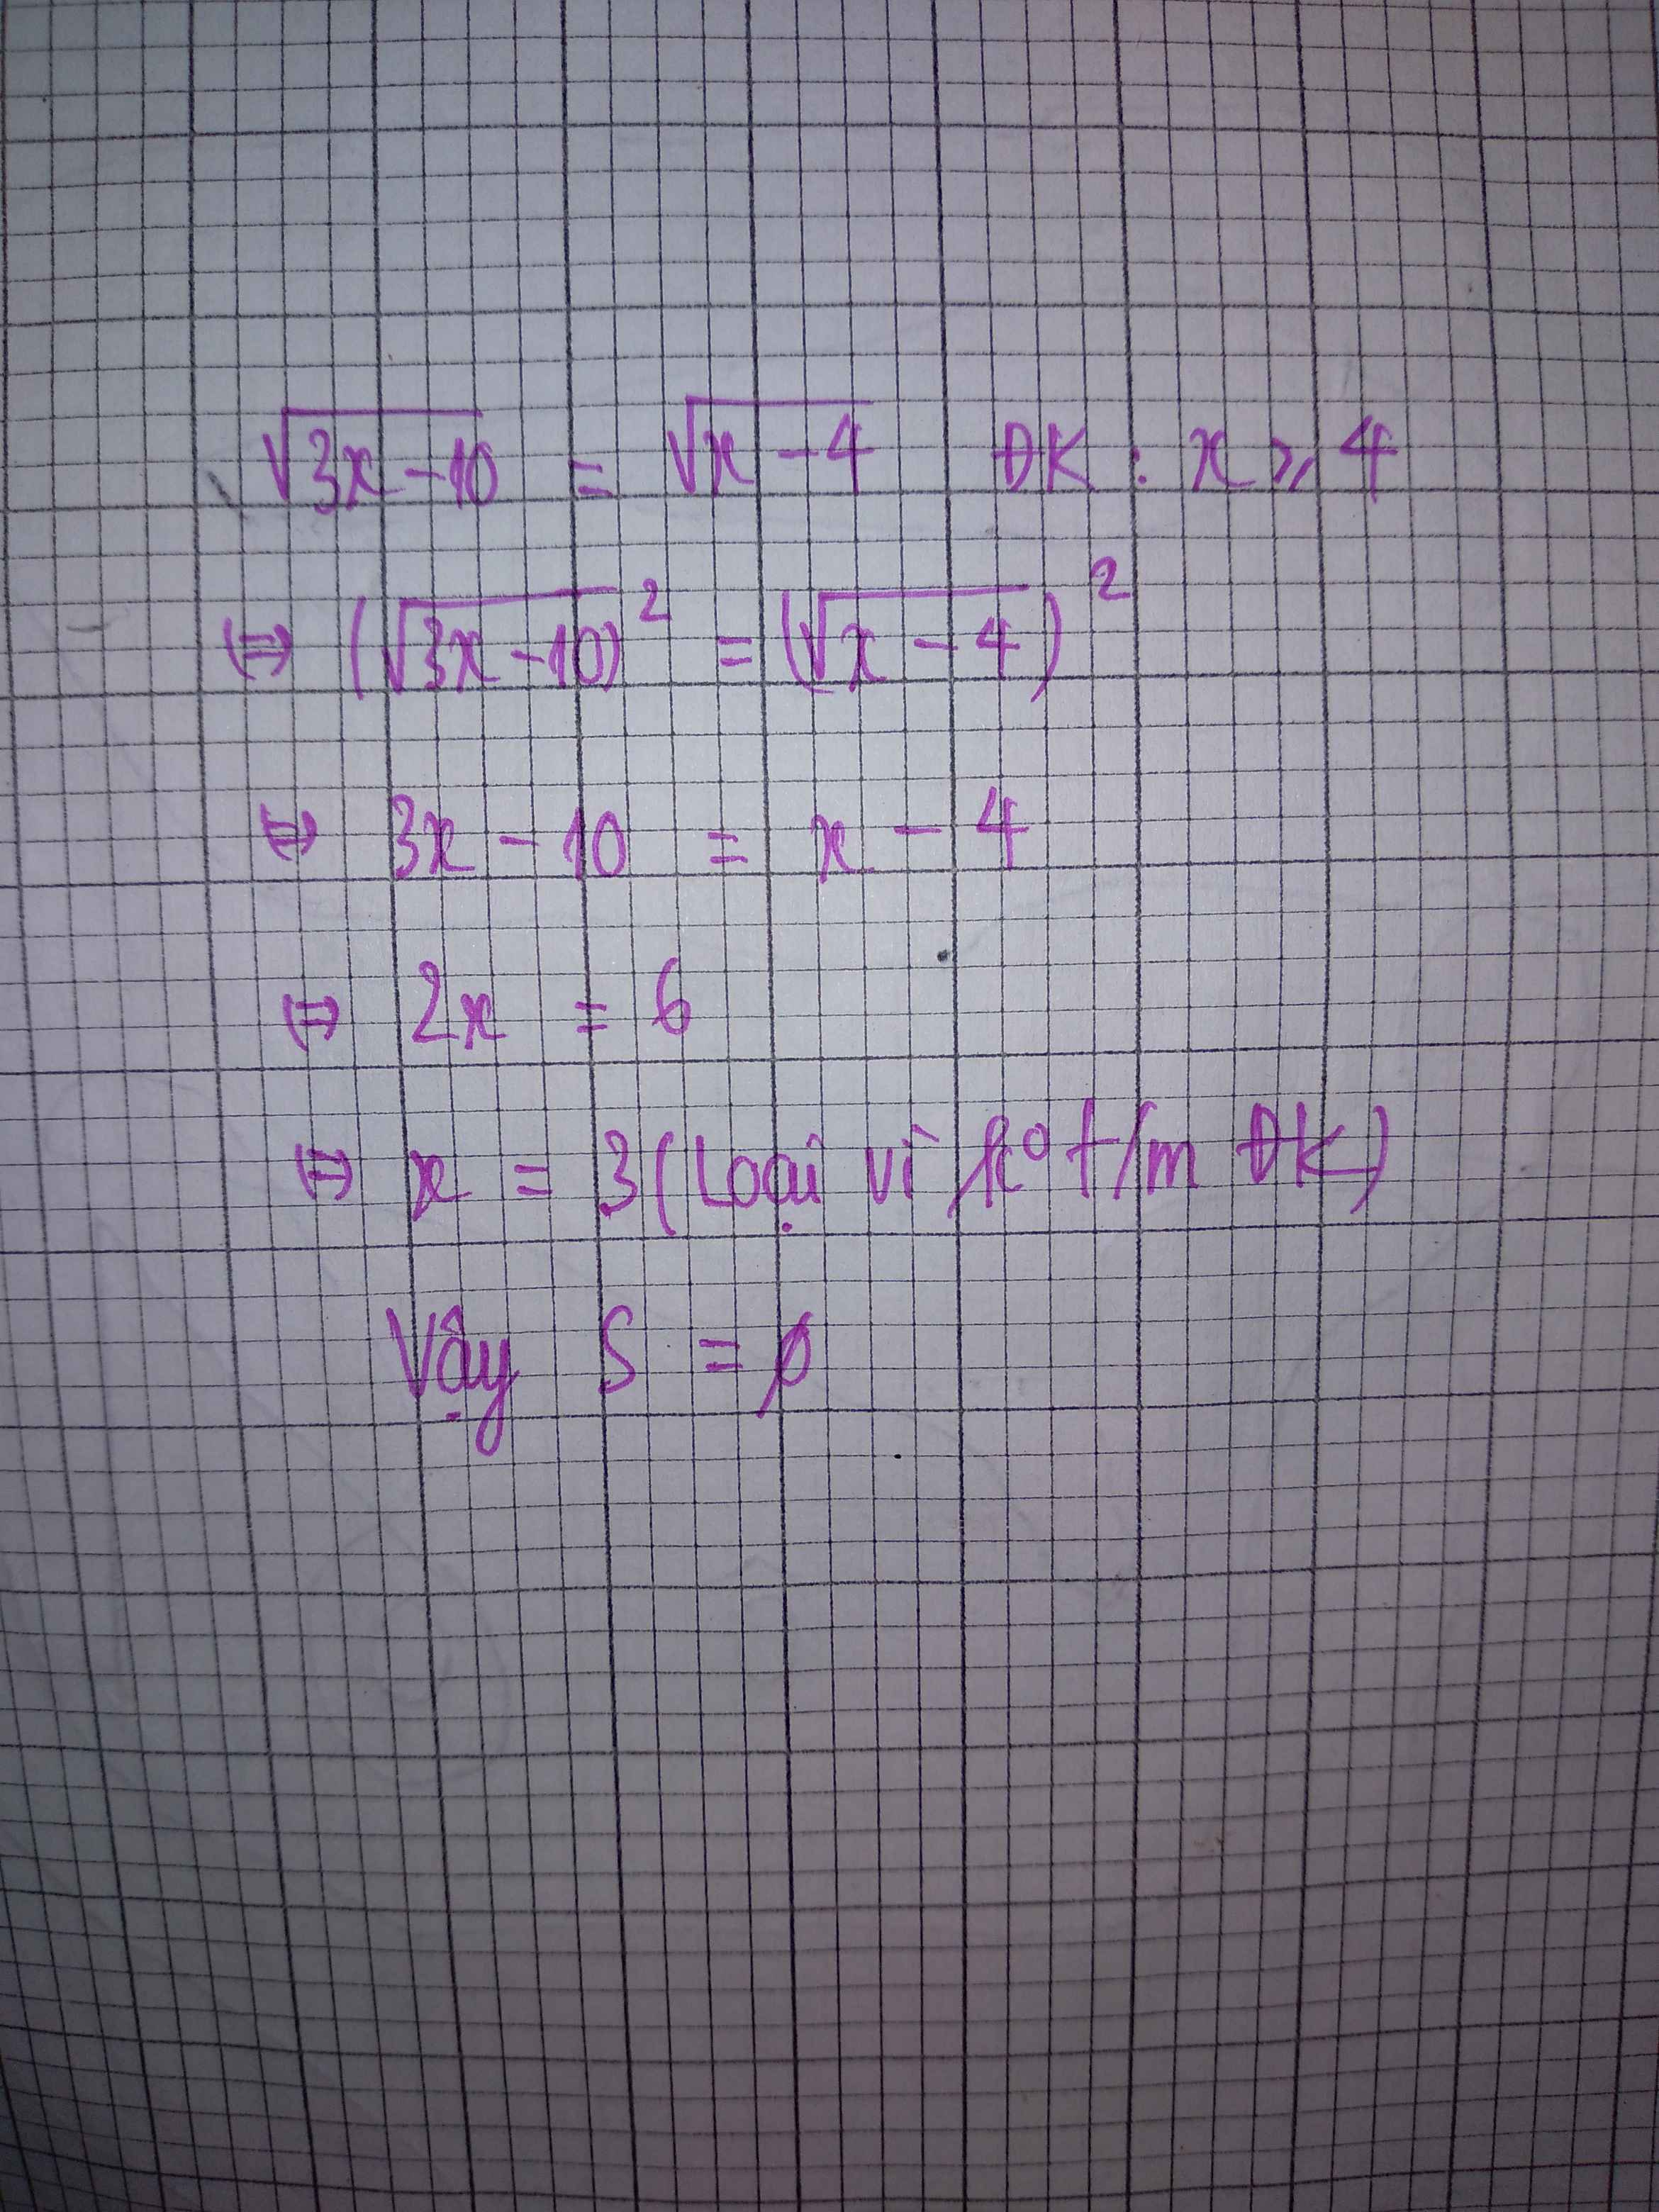 √3x-10 = √x-4 ĐK : x ≥ 4
⇔ (√3x-10)² = (√x-4)²
⇔ 3x - 10 = x - 4
⇔ 2x = 6
⇔ x = 3 (Loại vì k⁰ t/m ĐK)
Vậy S = ∅